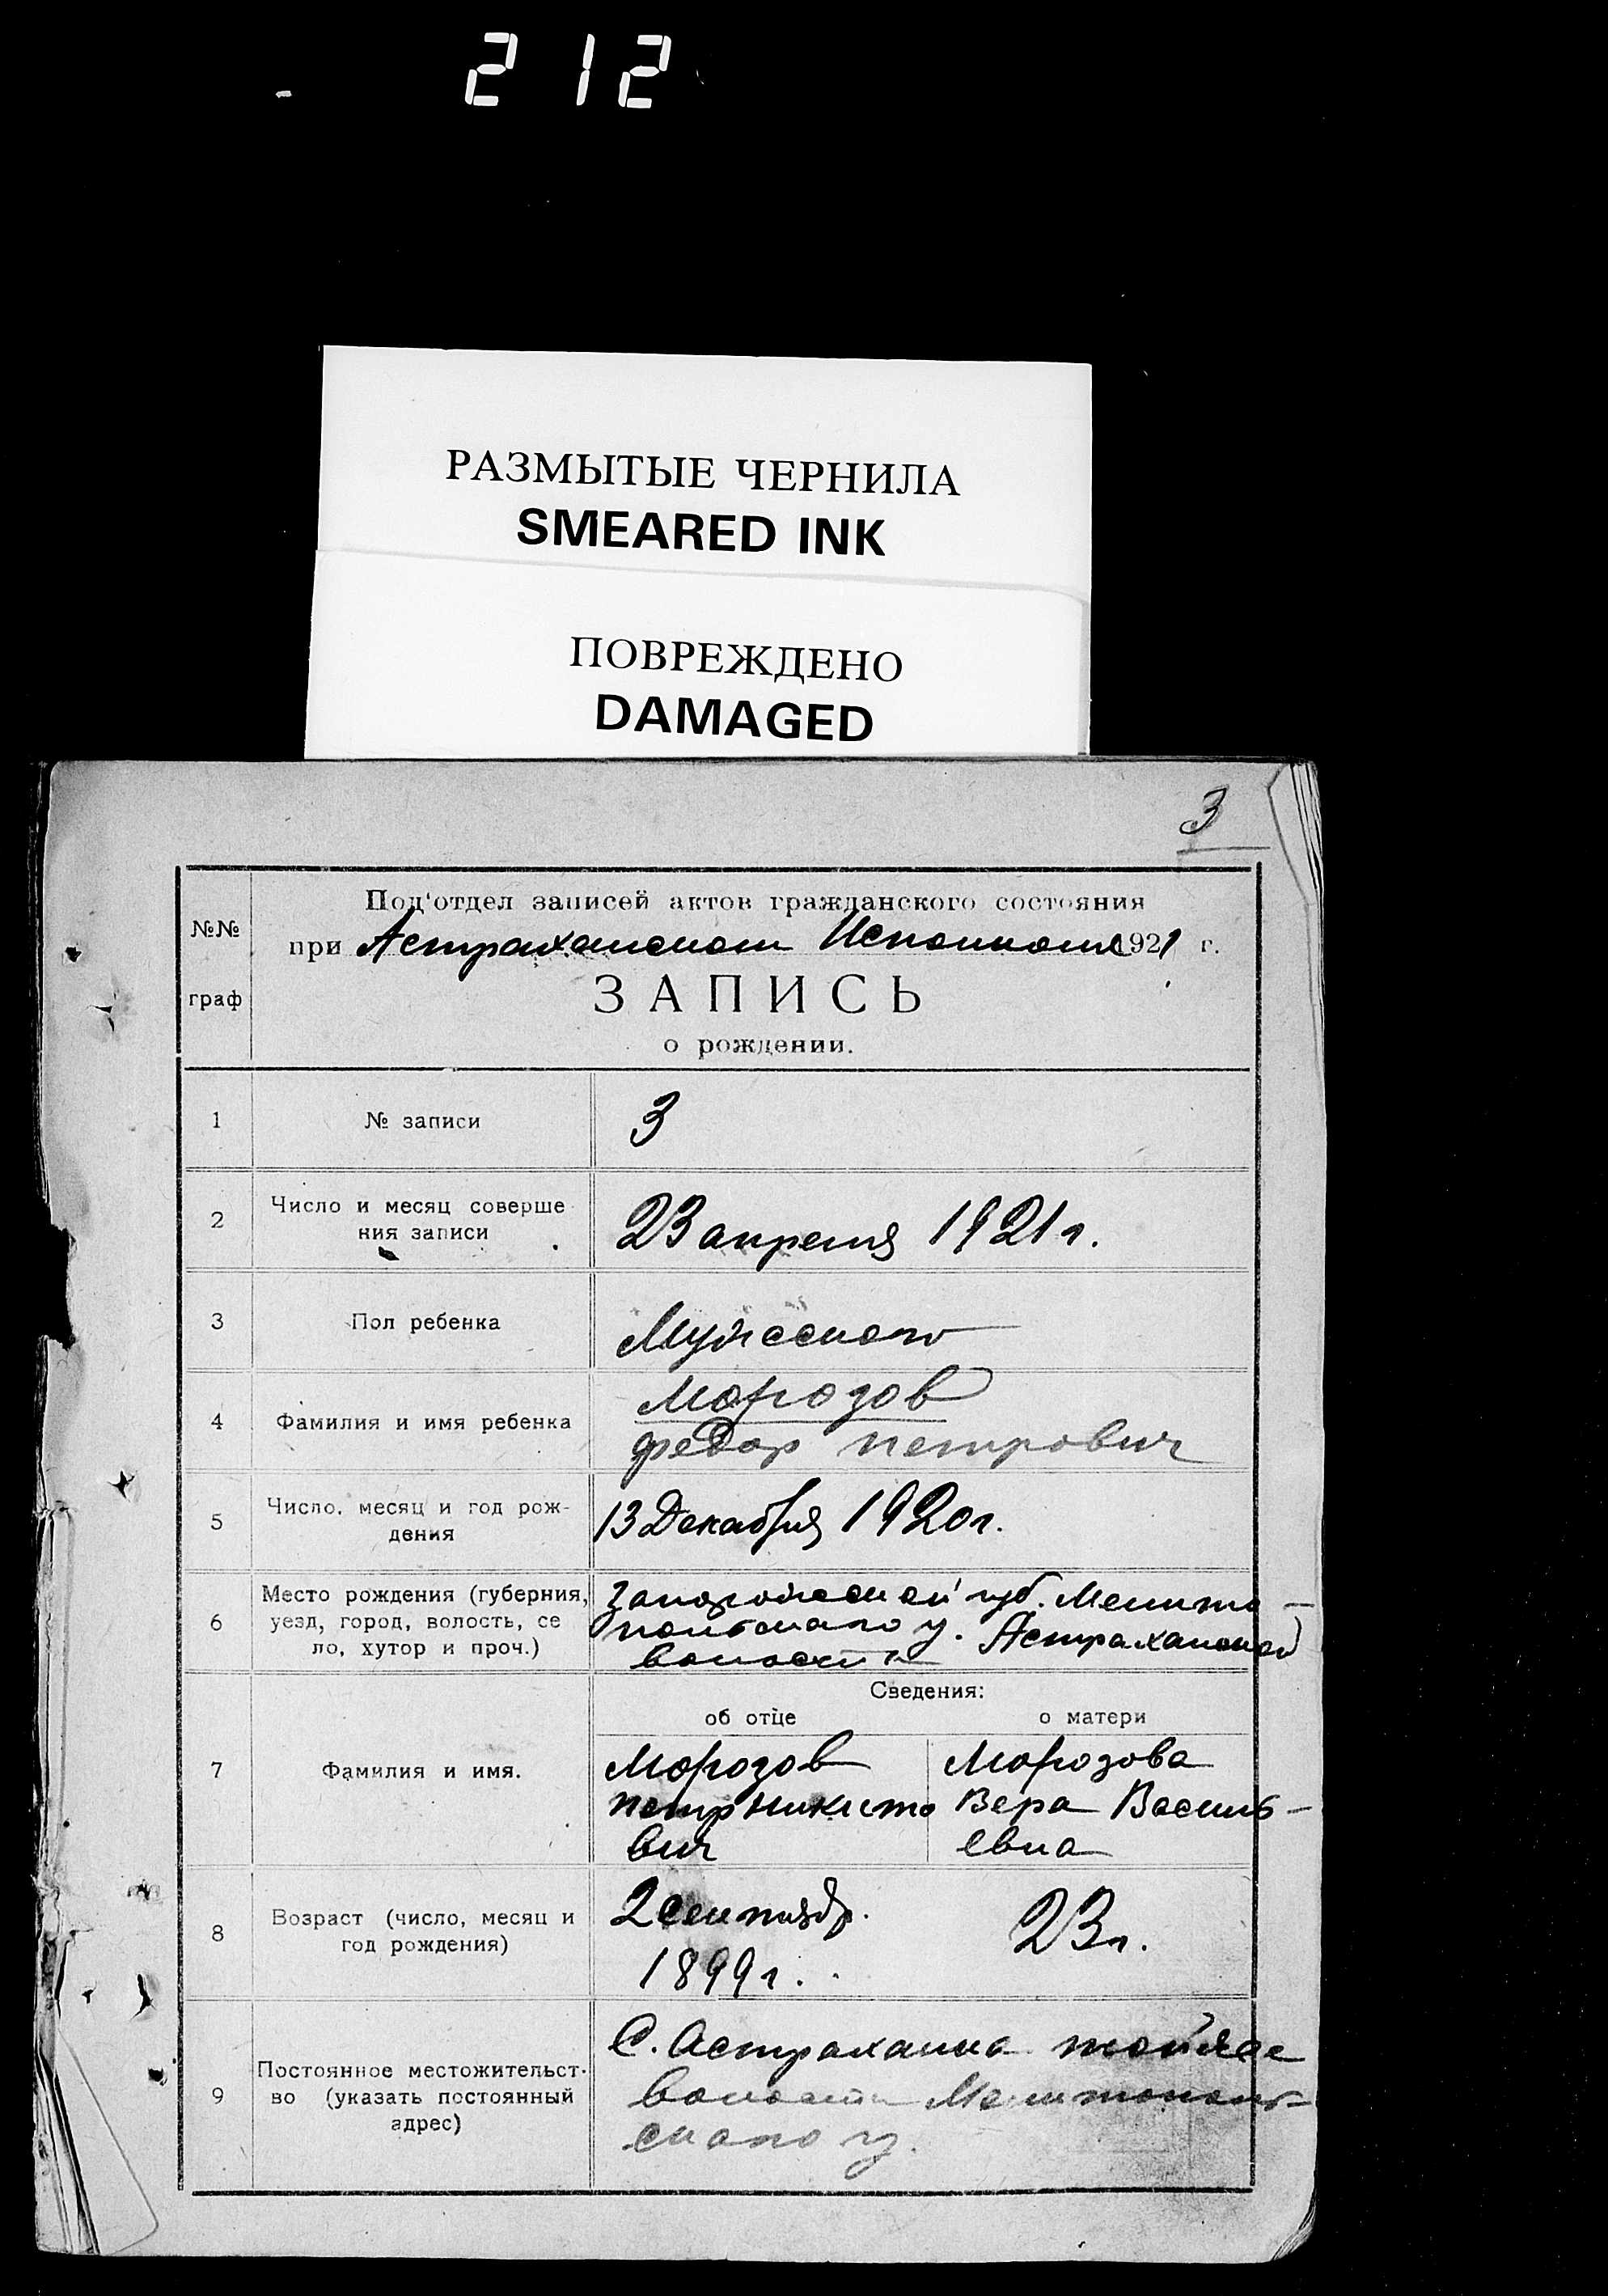 212
РАЗМЫТЫЕ ЧЕРНИЛА
SMEARED INK
ПОВРЕЖДЕНО
DAMAGED
3
№№
граф
Под'отдел записей актов гражданского состояния
при Астраханском Исполкоме 1921 г.
ЗАПИСЬ
о рождении.
1 № записи 3
2 Число и месяц соверше
ния записи
23 апреля 1921 г.
3 Пол ребенка Мужского
4 Фамилия и имя ребенка
Морозов
Федор Петрович
5 Число, месяц и год рож-
дения
13 Декабря 1920 г.
6 Место рождения (губерния,
уезд, город, волость, се
ло, хутор и проч.)
Запорожской губ. Мелито-
польского у. Астраханской
волости
Сведения:
об отце о матери
7 Фамилия и имя.
Морозов
Петр Никито
вич
Морозова
Вера Василь-
евна
8 Возраст (число, месяц и
год рождения)
2 сентябр.
1899 г.
23 г.
9 Постоянное местожительст-
во (указать постоянный
адрес)
С. Астраханка тойже
волости Мелитополь-
ского у.